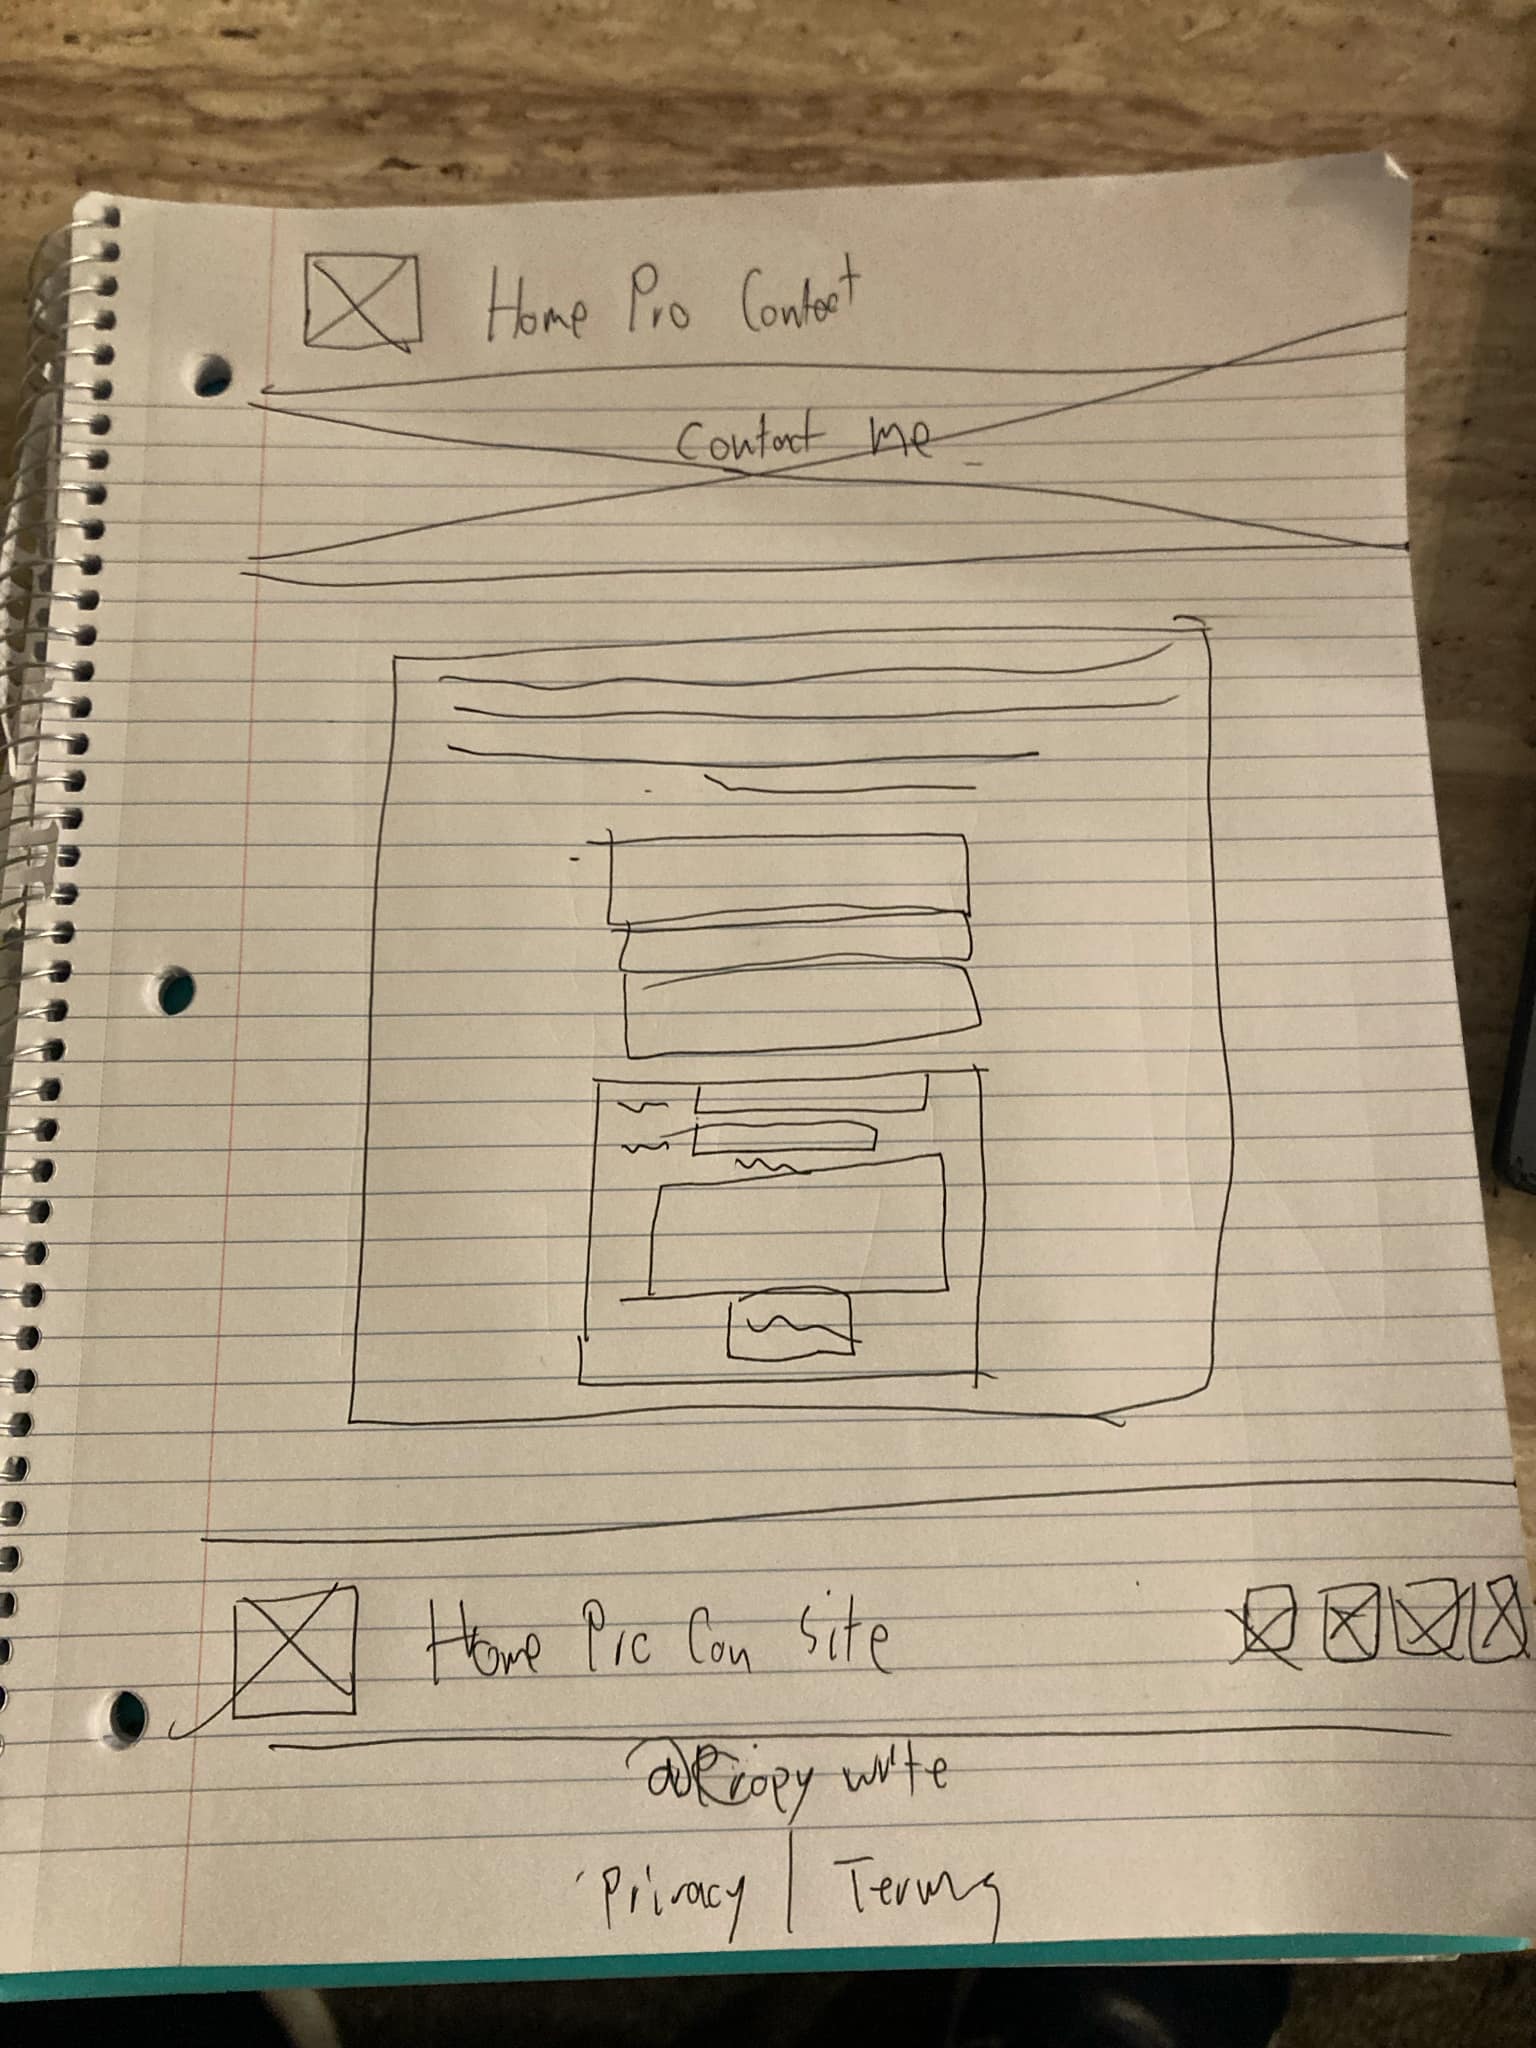 Home Pro Contact
Contact Me
Home Pro Con Site
Copy write
Privacy | Terms